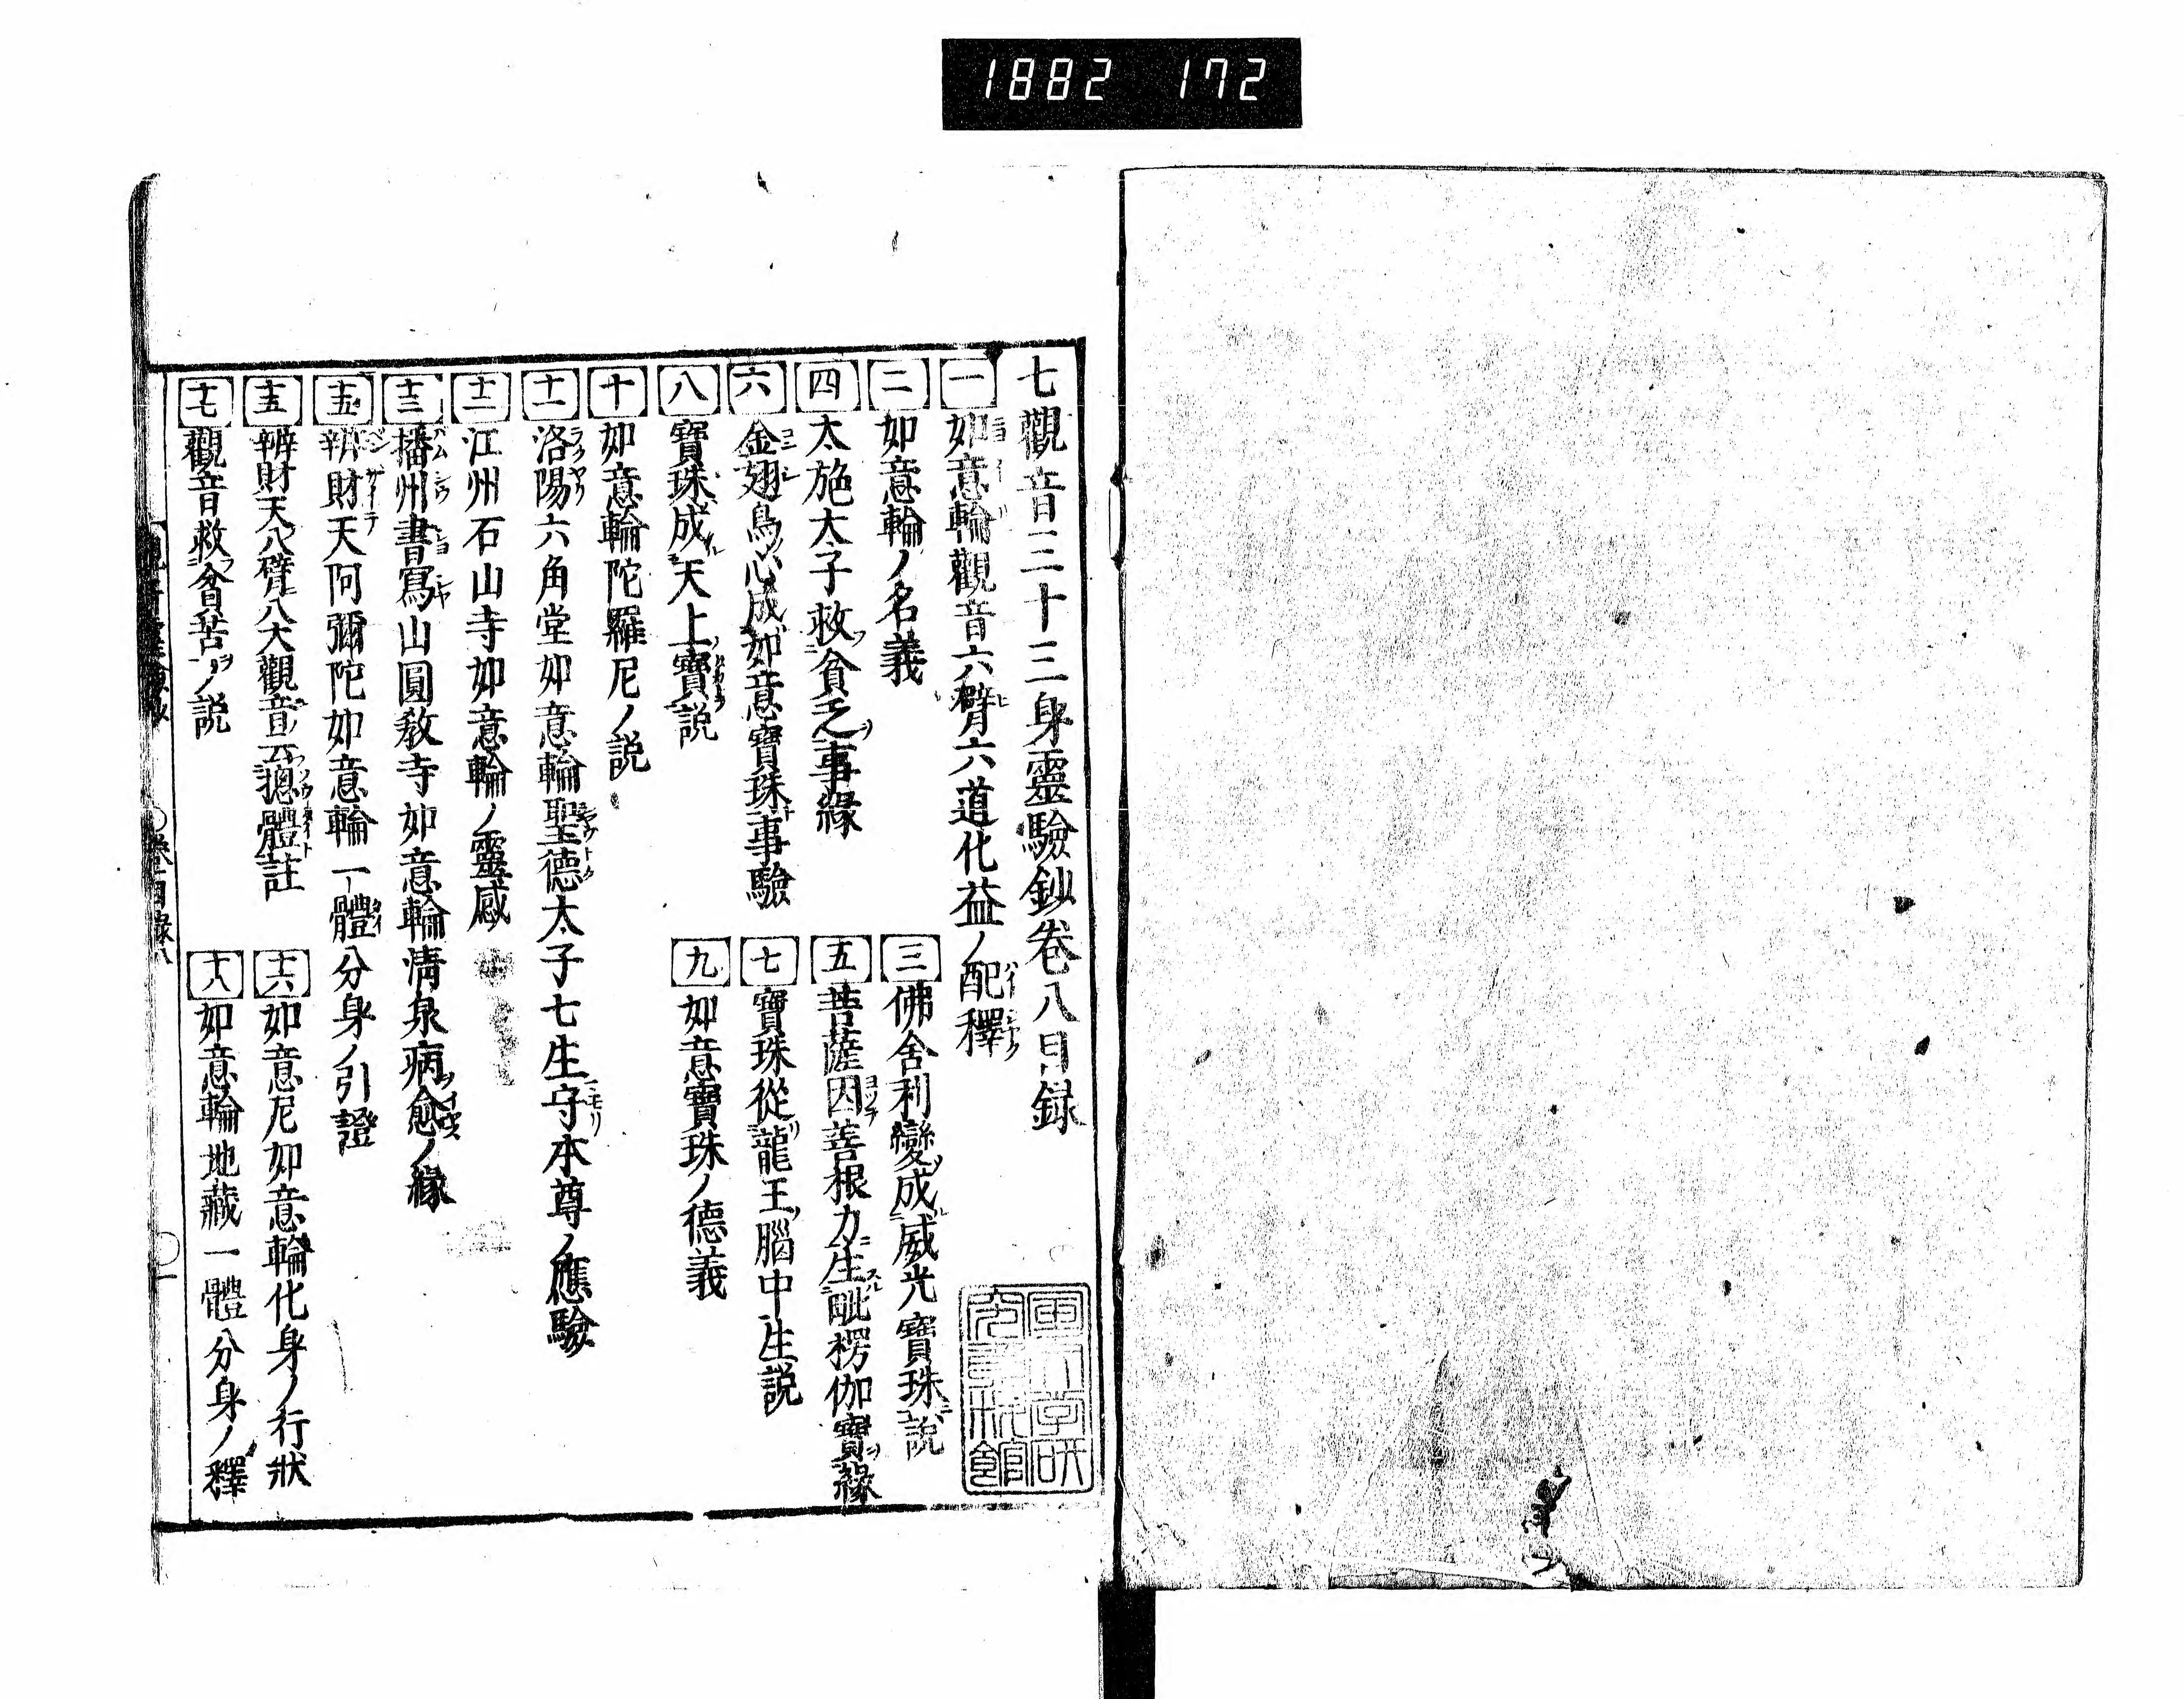 1882 172
七觀音三十三身靈驗鈔卷八目録
一 如意輪觀音六臂六道化益ノ配釋
二 如意輪ノ名義
三 佛舍利變成威光寶珠說
四 太施太子救貧乏事緣
五 菩薩因善根力生毗楞伽寶緣
六 金翅鳥心成如意寶珠事驗
七 寶珠從龍王腦中生說
八 寶珠成天上寶說
九 如意寶珠ノ德義
十 如意輪陀羅尼ノ說
十一 洛陽六角堂如意輪聖德太子七生守本尊ノ應驗
十二 江州石山寺如意輪ノ靈感
十三 播州書寫山圓教寺如意輪清泉病愈ノ緣
十五 辨財天阿彌陀如意輪一體分身ノ引證
十五 辨財天八臂八大觀音云摠體註
十六 如意尼如意輪化身ノ行狀
十七 觀音救貧苦ノ說
十八 如意輪地藏一體分身ノ釋